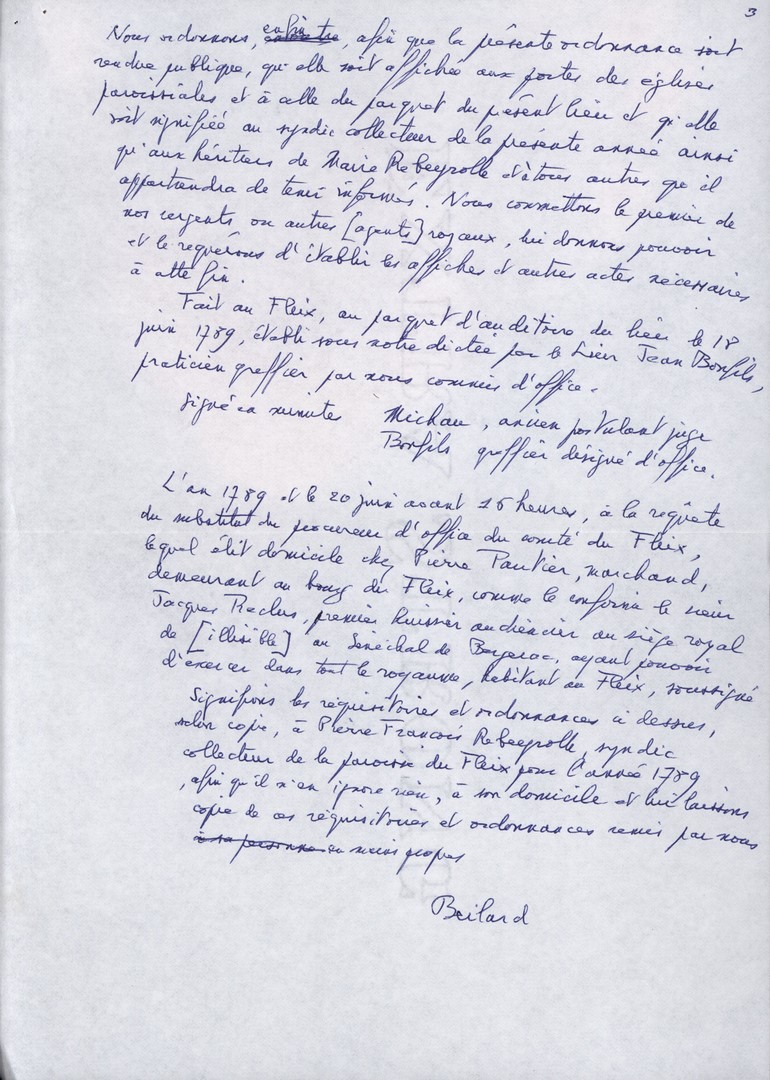 3
Nous ordonnons, enfin, afin que la présente ordonnance soit
rendue publique, qu'elle soit affichée aux portes des églises
paroissiales et à celle du parquet du présent lieu et qu'elle
soit signifiée au syndic collecteur de la présente année ainsi
qu'aux héritiers de Marie Rebeyrolle et à tous autres qu'il
appartiendra de tenir informés. Nous commettons le premier de
nos sergents ou autres [agents] royaux, lui donnons pouvoir
et le requérons d'établir les affiches et autres actes nécessaires
à cette fin.
Fait au Fleix, au parquet d'auditoire du lieu le 18
juin 1789, établi sous notre dictée par le sieur Jean Bonfils,
praticien greffier par nous commis d'office.
Signé en minute Michau, ancien postulant juge
Bonfils greffier désigné d'office.
L'an 1789 et le 20 juin avant 16 heures, à la requête
du substitut du procureur d'office du comté du Fleix,
lequel élit domicile chez Pierre Pautier, marchand,
demeurant au bourg du Fleix, comme le confirme le sieur
Jacques Reclus, premier huissier audiencier au siège royal
de [illisible] au Sénéchal de Bergerac, ayant pouvoir
d'exercer dans tout le royaume, habitant au Fleix, soussigné
Signifions les réquisitoires et ordonnances ci dessus,
selon copie, à Pierre François Rebeyrolle, syndic
collecteur de la paroisse du Fleix pour l'année 1789
, afin qu'il n'en ignore rien, à son domicile et lui laissons
copie de ces réquisitoires et ordonnances remis par nous
à sa personne en mains propres
Beilard